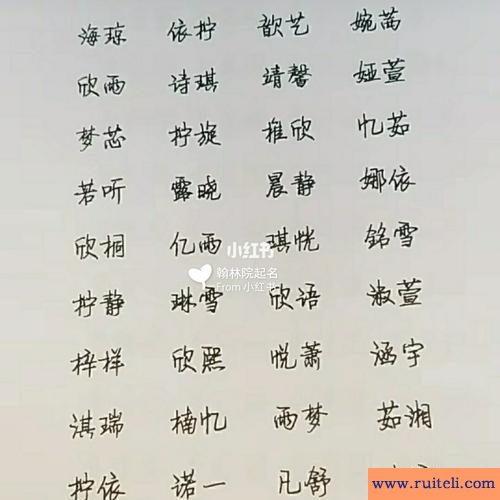 海琼 依柠 歆艺 婉茜
欣雨 诗琪 靖馨 娅萱
梦芯 柠旋 稚欣 忆茹
若听 露晓 晨静 娜依
欣桐 亿雨 琪恍 铭雪
小红书
翰林院起名
From 小红书
柠静 琳雪 欣语 淑萱
梓样 欣熙 悦萧 涵宇
淇瑞 楠忆 雨梦 茹湘
柠依 诺一 凡舒
www.ruiteli.com